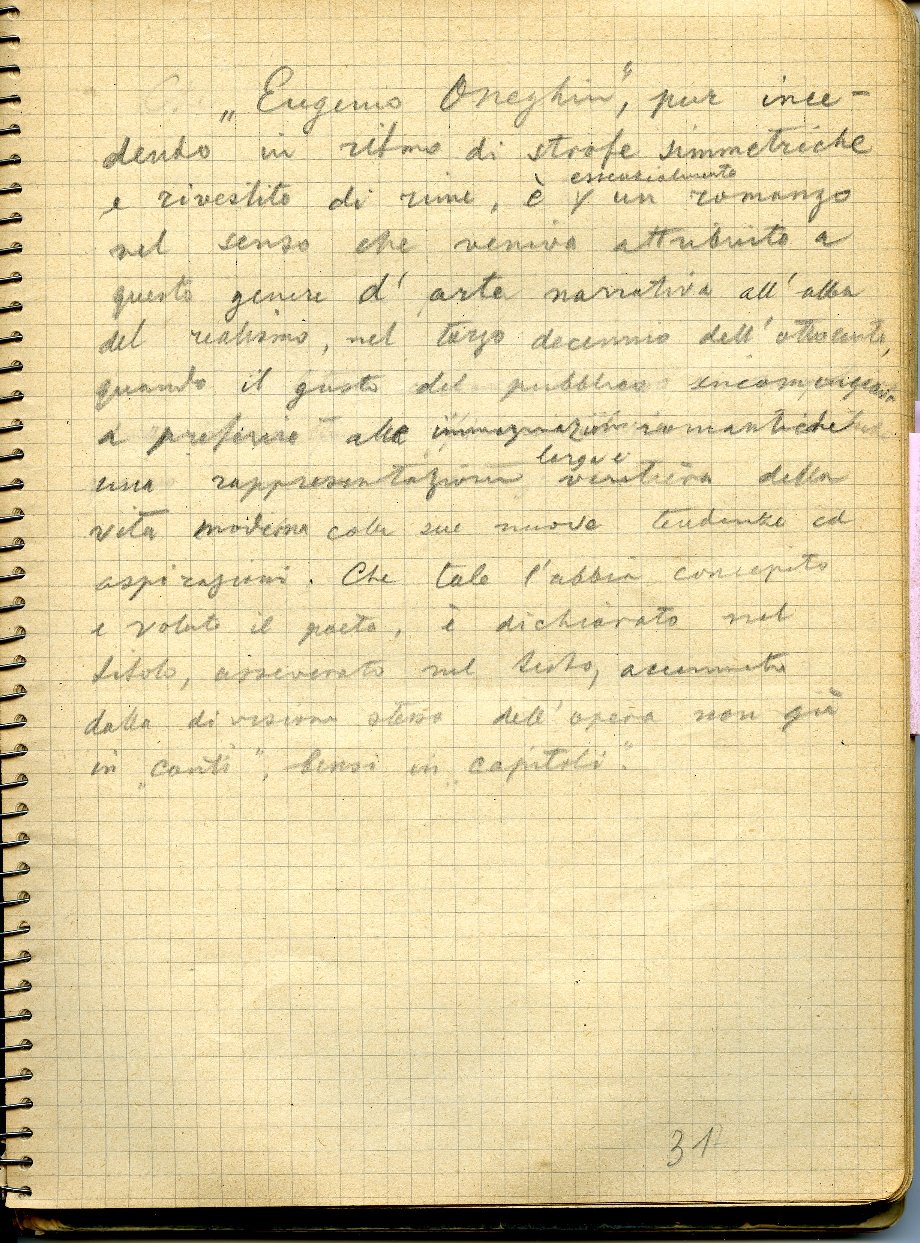 „Eugenio Oneghin", pur ince-
dendo in ritmo di strofe simmetriche
essenzialmente
e rivestito di rime, è un romanzo
nel senso che veniva attribuito a
questo genere d'arte narrativa all'alba
del realismo, nel terzo decennio dell'ottocento,
quando il gusto del pubblico
a preferire alle immaginazioni romantiche
larga e
una rappresentazione veritiera della
vita moderna colle sue nuove tendenze ed
aspirazioni. Che tale l'abbia concepito
e voluto il poeta, è dichiarato nel
titolo, asseverato nel testo,
dalla divisione stessa dell'opera non già
in „canti", bensì in „capitoli".
31